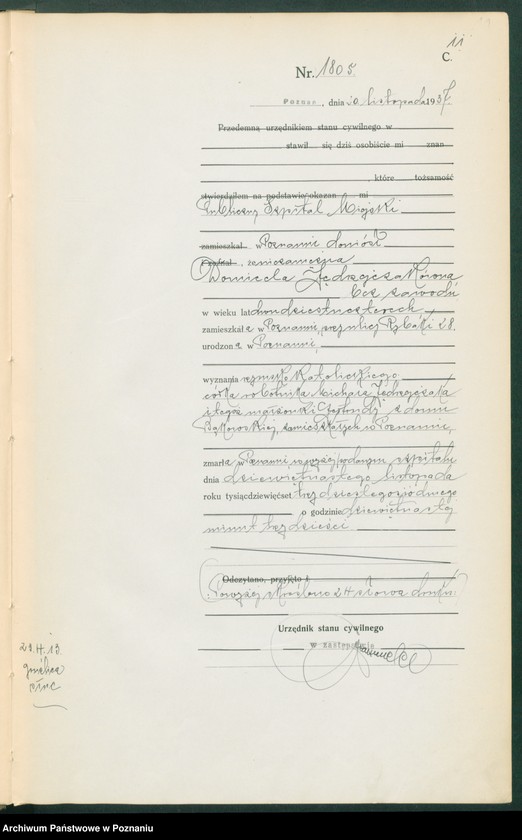 11
C.
Nr. 1805.
Poznań, dnia 20 listopada 1937.
Przedemną urzędnikiem stanu cywilnego w
stawił się dziś osobiście mi znan
, które tożsamość
stwierdziłem na podstawie okazan mi
Publiczny Szpital Miejski
zamieszkał w Poznaniu doniósł
, że niezamężna
Pomicela Jędrzejczakówna
bez zawodu
w wieku lat dwudziestuczterech
zamieszkała w Poznaniu, przy ulicy Rybaki 28.
urodzona w Poznaniu,
wyznania rzymsko katolickiego
córka robotnika Jędrzejczaka
i tegoż małżonki z domu
Bąkowskiej, zamieszkałych w Poznaniu,
zmarła w Poznaniu w wyżej podanym szpitalu
dnia dziewiętnastego listopada
roku tysiącdziewięćset trzydziestego siódmego
o godzinie dziewiętnastej
minut trzydzieści
Odczytano, przyjęto i
Powyżej skreślono 24 słowa druku.
Urzędnik stanu cywilnego
w zastępstwie
29.4.13
gruźlica
płuc
Archiwum Państwowe w Poznaniu